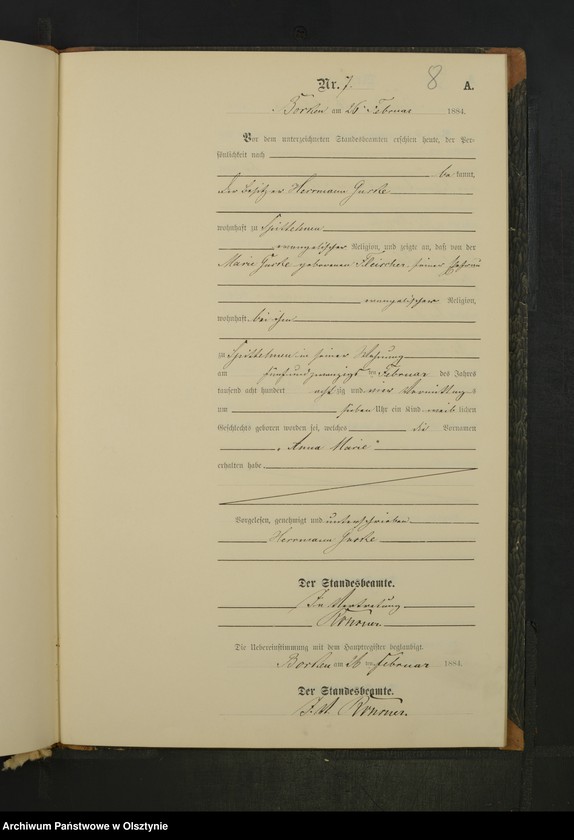 Nr. 7.
8
A.
Borken am 26 Februar 1884.
Vor dem unterzeichneten Standesbeamten erschien heute, der Per-
sönlichkeit nach
be kannt,
der Besitzer Herrmann
wohnhaft zu
evangelischer Religion, und zeigte an, daß von der
Marie geborenen Fleischer, seiner Ehefrau
evangelischer Religion,
wohnhaft bei ihm
zu in seiner Wohnung
am fünfundzwanzigst en Februar des Jahres
tausend acht hundert acht zig und vier Vormittag s
um sieben Uhr ein Kind weib lichen
Geschlechts geboren worden sei, welches die Vornamen
„Anna Marie“
erhalten habe
Vorgelesen, genehmigt und unterschrieben
Herrmann
Der Standesbeamte.
In Vertretung
Die Uebereinstimmung mit dem Hauptregister beglaubigt.
Borken am 26 ten Februar 1884
Der Standesbeamte.
Archiwum Państwowe w Olsztynie